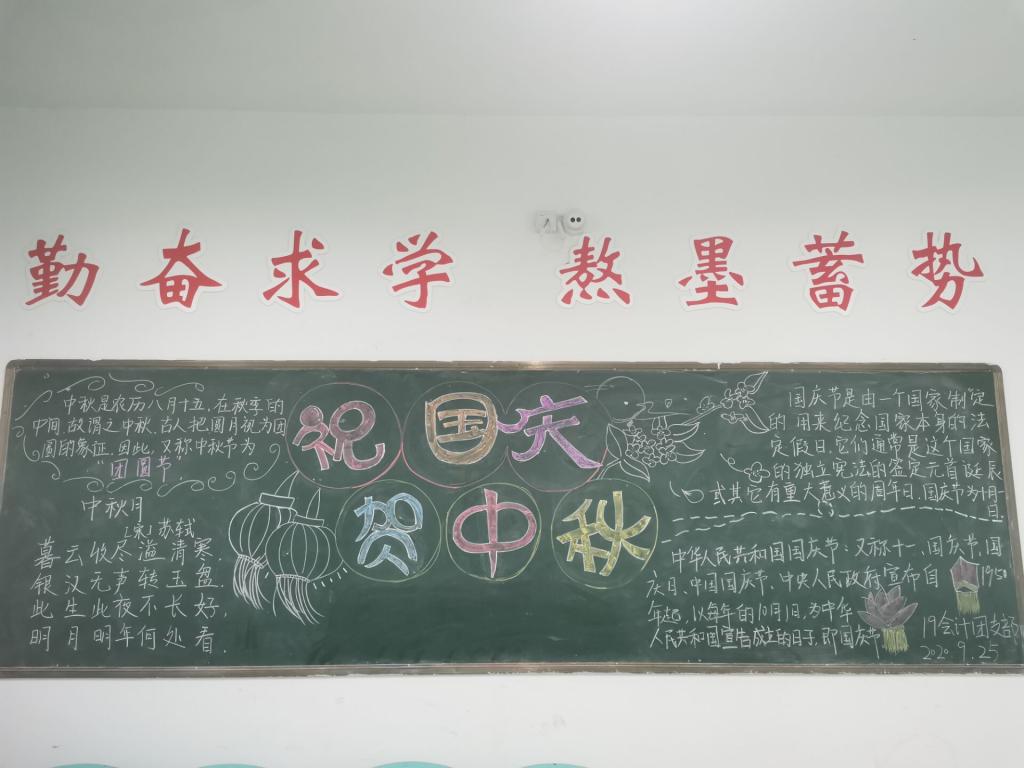 勤奋求学 熬墨蓄势
中秋是农历八月十五,在秋季的
中间故谓之中秋.古人把圆月视为团
圆的象征.因此,又称中秋节为
"团圆节".
中秋月
[宋]苏轼
暮云收尽溢清寒,
银汉无声转玉盘.
此生此夜不长好,
明月明年何处看.
祝国庆
贺中秋
国庆节是由一个国家制定
的用来纪念国家本身的法
定假日.它们通常是这个国家
的独立宪法的签定元首诞辰
或其它有重大意义的周年日.国庆节为十月一
日
中华人民共和国国庆节:又称十一、国庆节,国
庆日、中国国庆节.中央人民政府宣布自1950
年起,以每年的10月1日,为中华
人民共和国宣告成立的日子,即国庆节
19会计团支部
2020.9.25